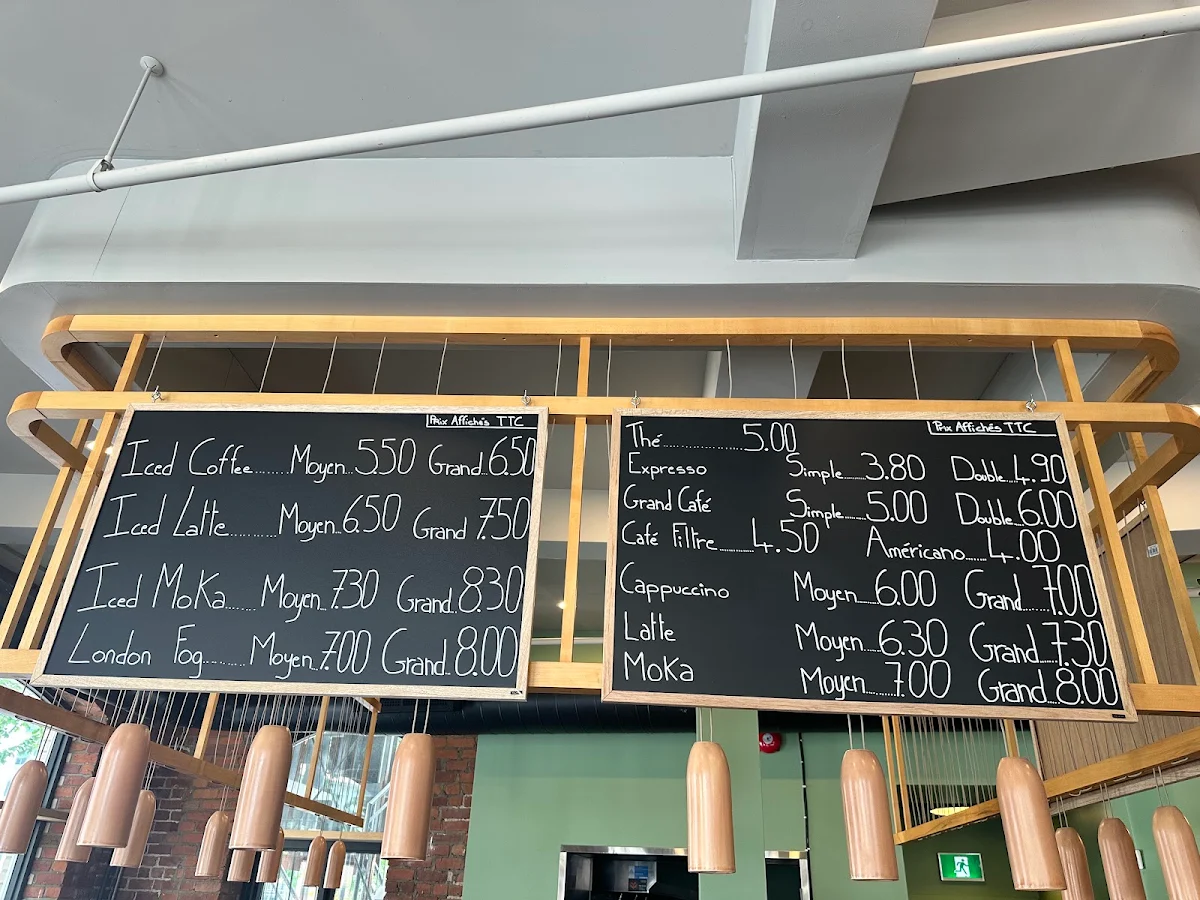 Prix Affichés TTC
Iced Coffee........ Moyen...5.50 Grand..6.50
Iced Latte........... Moyen..6.50 Grand 7.50
Iced MoKa....... Moyen..7.30 Grand..8.30
London Fog.......... Moyen..7.00 Grand..8.00
Prix Affichés TTC
Thé....................5.00
Expresso Simple.....3.80 Double...4.90
Grand Café Simple.......5.00 Double...6.00
Café Filtre........4.50 Américano......4.00
Cappuccino Moyen....6.00 Grand.....7.00
Latte Moyen....6.30 Grand....7.30
MoKa Moyen.......7.00 Grand....8.00